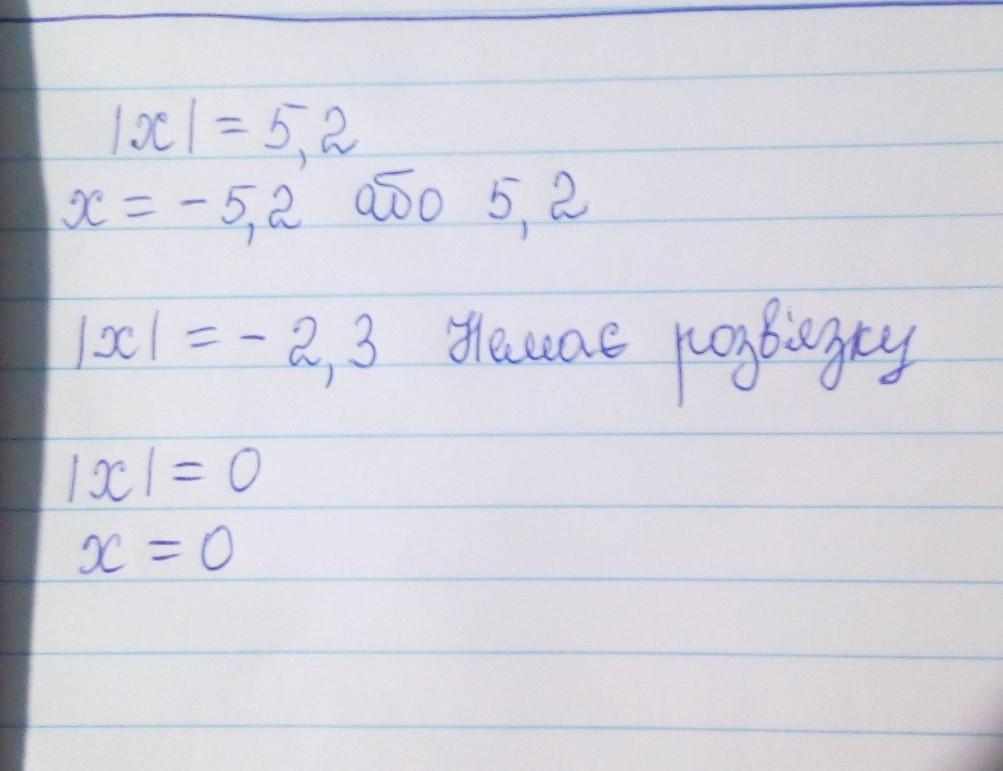 |x| = 5,2
x = - 5,2 або 5,2
|x| = - 2,3 Немає розв'язку
|x| = 0
x = 0